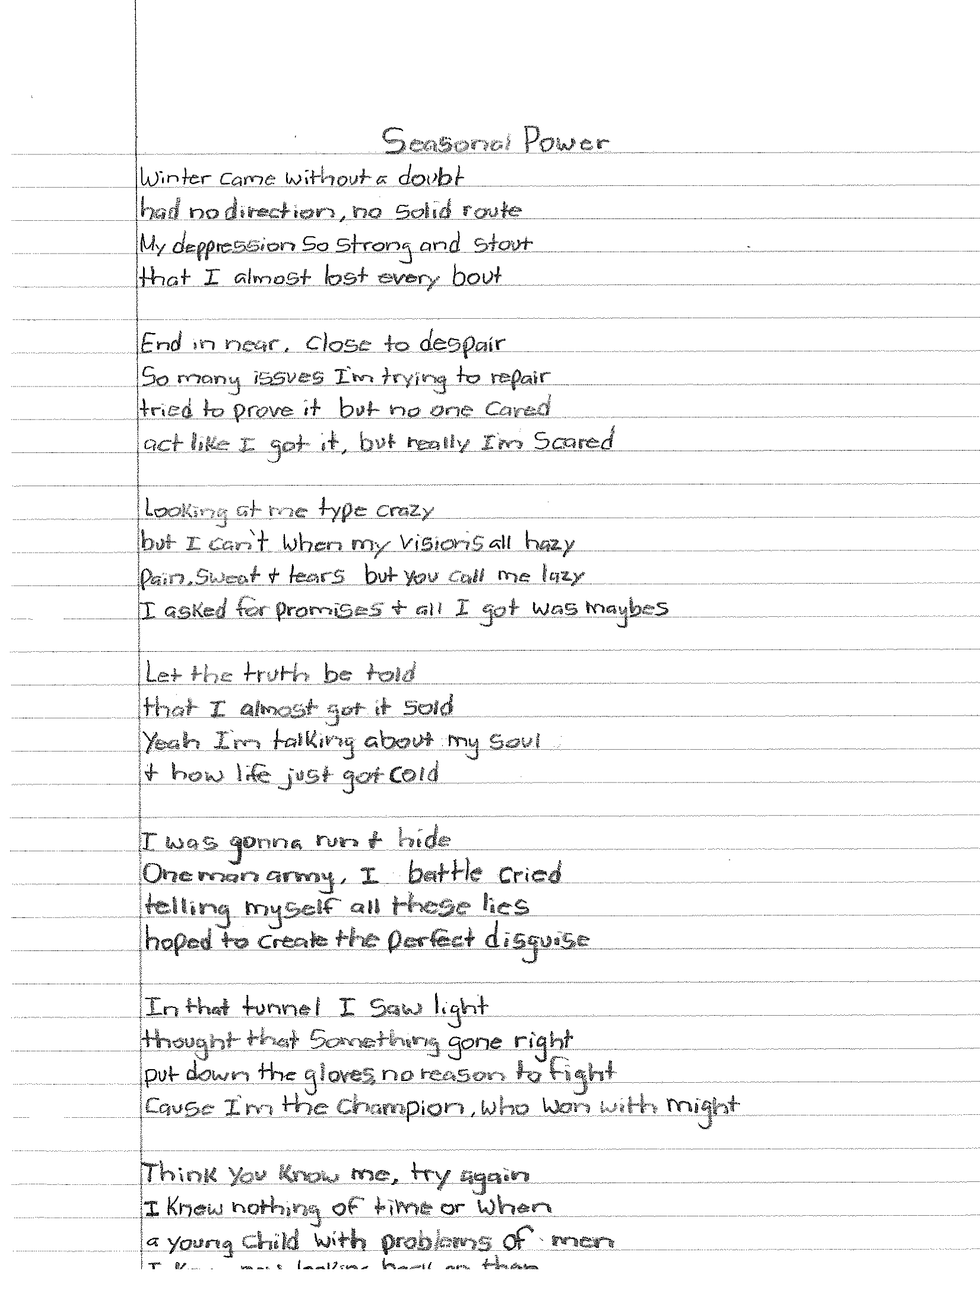 Seasonal Power
Winter came without a doubt
had no direction, no solid route
My deppression so strong and stout
that I almost lost every bout
End in near. Close to despair
So many issues I'm trying to repair
tried to prove it but no one cared
act like I got it, but really I'm scared
Looking at me type crazy
but I can't when my visions all hazy
Pain, sweat + tears but you call me lazy
I asked for promises + all I got was maybes
Let the truth be told
that I almost got it sold
Yeah I'm talking about my soul
+ how life just got cold
I was gonna run + hide
One man army, I battle cried
telling myself all these lies
hoped to create the perfect disguise
In that tunnel I saw light
thought that something gone right
put down the gloves, no reason to fight
Cause I'm the champion, who won with might
Think you know me, try again
I knew nothing of time or when
a young child with problems of men
looking back on